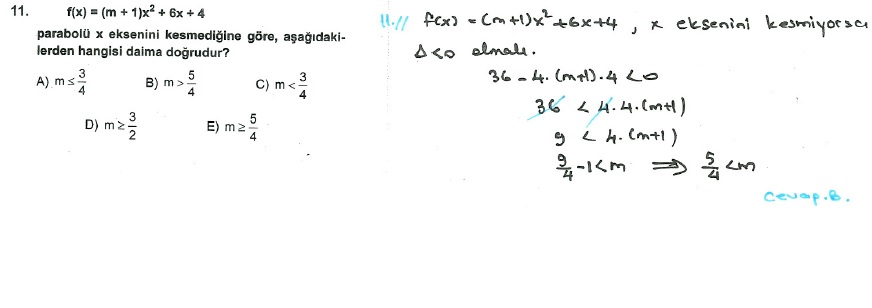 11. f(x) = (m + 1)x² + 6x + 4
parabolü x eksenini kesmediğine göre, aşağıdaki-
lerden hangisi daima doğrudur?
A) m ≤ 3/4 B) m > 5/4 C) m < 3/4
D) m ≥ 3/2 E) m ≥ 5/4
11.// f(x) = (m+1)x² + 6x + 4 , x eksenini kesmiyorsa
Δ<0 olmalı.
36 - 4.(m+1).4 < 0
36 < 4.4.(m+1)
9 < 4.(m+1)
9/4 - 1 < m ⟹ 5/4 < m
Cevap.B.